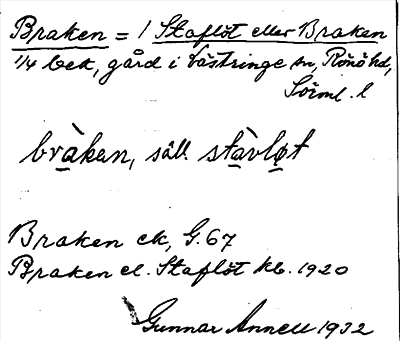 Braken = 1 Staflöt eller Braken
1/4 bek, gård i Västringe sn, Rönö hd,
Sörml. l
bràken, säll. stàvløt
Braken ek, G. 67
Braken el. Staflöt kb. 1920
Gunnar Annell 1932